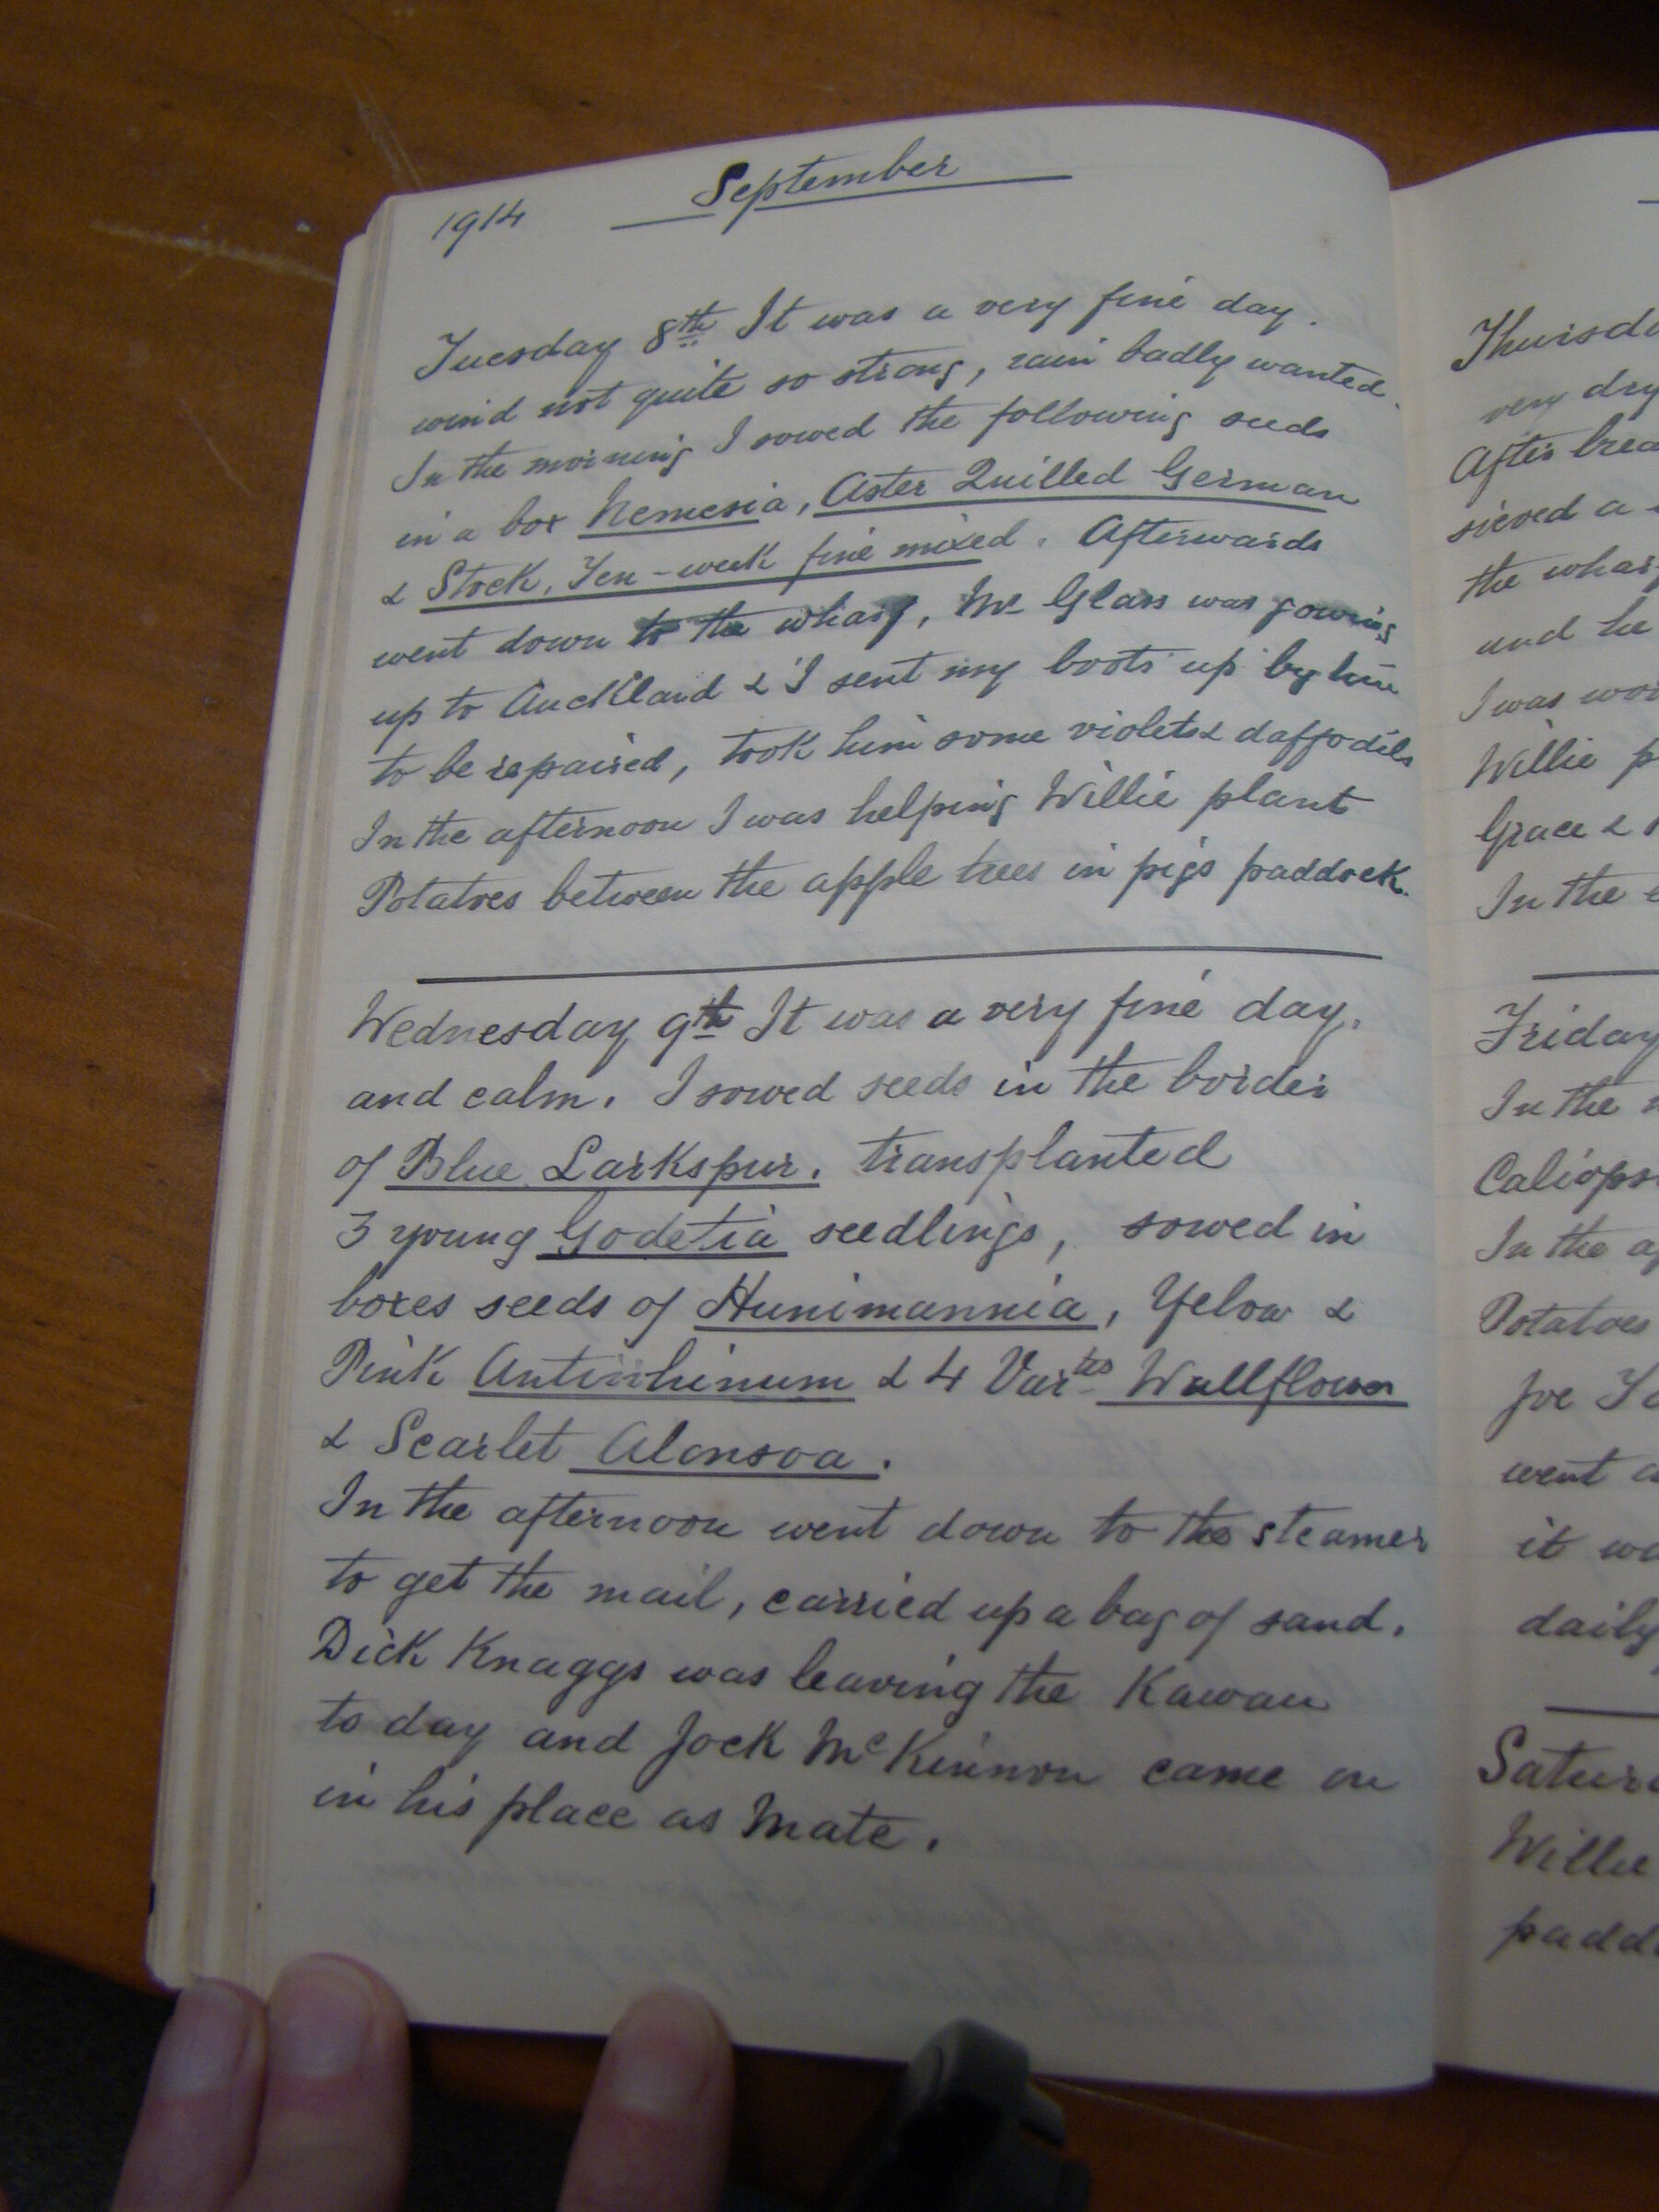 1914
September
Tuesday 8th It was a very fine day.
wind not quite so strong, rain badly wanted.
In the morning I sowed the following seeds
in a box Nemesia, Aster Quilled German
& Stock, Ten-week fine mixed. Afterwards
went down to the wharf, Mr Glass was gowing
up to Auckland & I sent my boots up by him
to be repaired, took him some violets & daffodils
In the afternoon I was helping Willie plant
Potatoes between the apple trees in pigs paddock.
Wednesday 9th It was a very fine day.
and calm. I sowed seeds in the border
of Blue Larkspur. transplanted
3 young Godetia seedlings, sowed in
boxes seeds of Hunimannia, Yelow &
Pink Antirrhinum & 4 Varties Wallflower
& Scarlet Alonsoa.
In the afternoon went down to the steamer
to get the mail, carried up a bag of sand.
Dick Knaggs was leaving the Kawau
to day and Jock McKinnon came on
in his place as Mate.
very dry
After
sieved a
the
and he
I was
Willie
Grace &
In the
Friday
In the
In the
Potatoes
Joe
went
it
daily
Willie